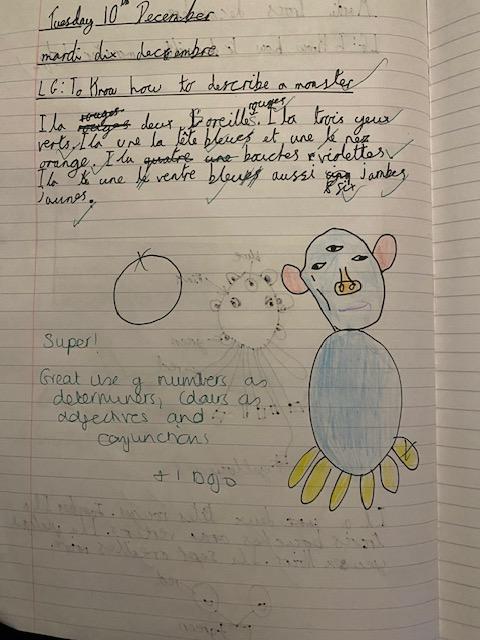 Tuesday 10th December
mardi dix decembre.
LG: To Know how to describe a monster
rouges rouges
Il a rouges deux oreilles. Il a trois yeux
verts, Il a une la tête bleues et une le nez
orange. Il a quatre une bouches violettes
Il a une le ventre bleues aussi six Jambes
Jaunes.
Super!
Great use of numbers as
determiners, colours as
adjectives and
conjunctions
+1 Dojo